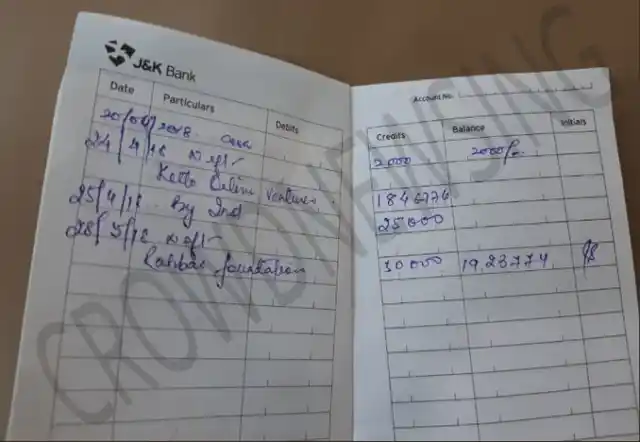 J&K Bank
Date Particulars Debits
20/04/2018 Cash
24/4/18 Neft
Ketto Online Ventures
25/4/18 By Ind
28/5/18 Neft
Rahbar foundation
Account No.
Credits Balance Initials
2000 2000/-
1846774
25000
50000 19,23774
CROWDNEWSING